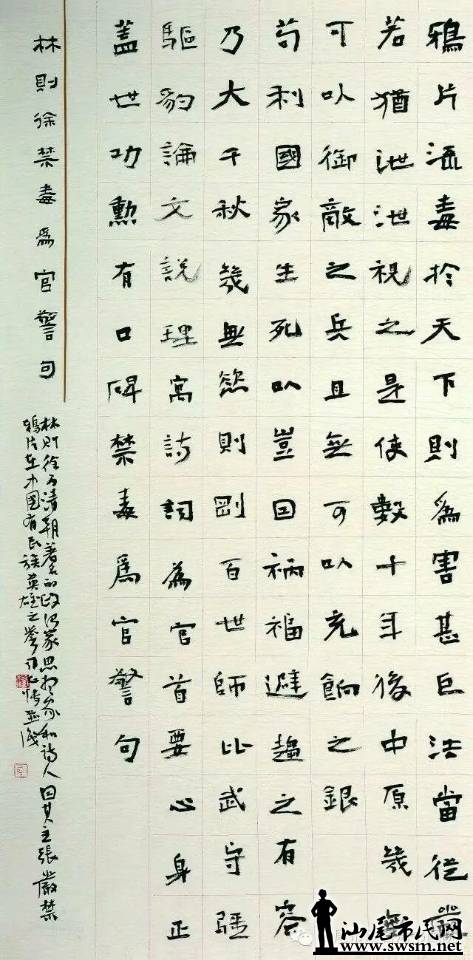 鴉片流毒於天下則爲害甚巨法當從嚴
若猶泄泄視之是使數十年後中原幾無
可以御敵之兵且無可以充餉之銀
苟利國家生死以豈因禍福避趨之有容
乃大千秋幾無慾則剛百世師比武守疆
驅豹論文説理寓詩詞為官首要心身正
蓋世功勳有口碑禁毒爲官警句
林則徐禁毒爲官警句
林則徐乃清朝著名的政治家思想家和詩人因其主張嚴禁
鴉片在中國有民族英雄之譽
汕尾市民网
www.swsm.net